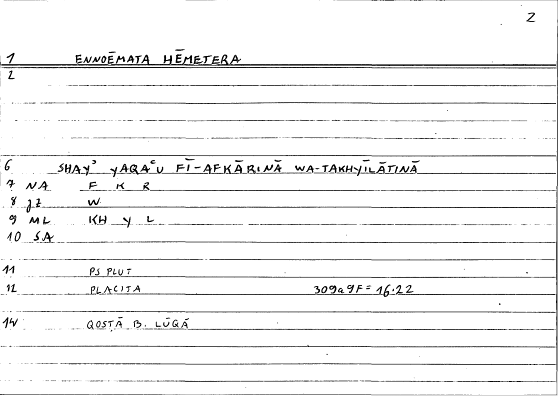 2
1 ENNOĒMATA HĒMETERA
2
6 SHAYʾ YAQAʿU FĪ-AFKĀRINĀ WA-TAKHYĪLĀTINĀ
7 NA F K R
8 JZ W
9 ML KH Y L
10 SA
11 PS PLUT
12 PLACITA 309a9F = 16.22
14 QOSTĀ B. LŪQĀ